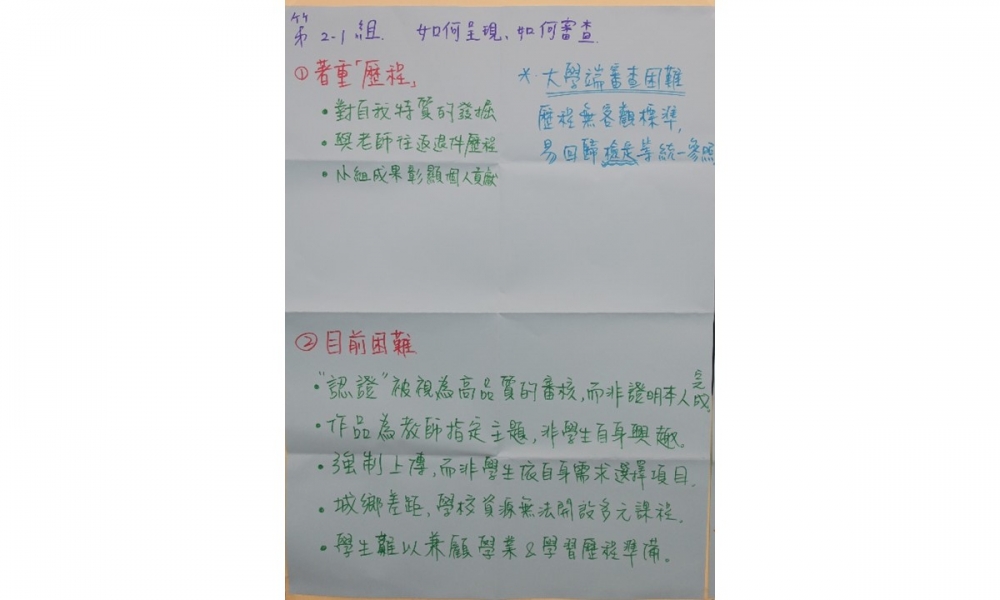 第 2-1 組. 如何呈現、如何審查.
① 著重「歷程」
• 對自我特質的發掘
• 與老師往返退件歷程
• 小組成果彰顯個人貢獻
* 大學端審查困難
歷程無客觀標準,
易回歸檢定等統一參照
② 目前困難
• "認證"被視為高品質的審核,而非證明本人完成
• 作品為教師指定主題,非學生自身興趣。
• 強制上傳,而非學生依自身需求選擇項目.
• 城鄉差距,學校資源無法開設多元課程.
• 學生難以兼顧學業&學習歷程準備。